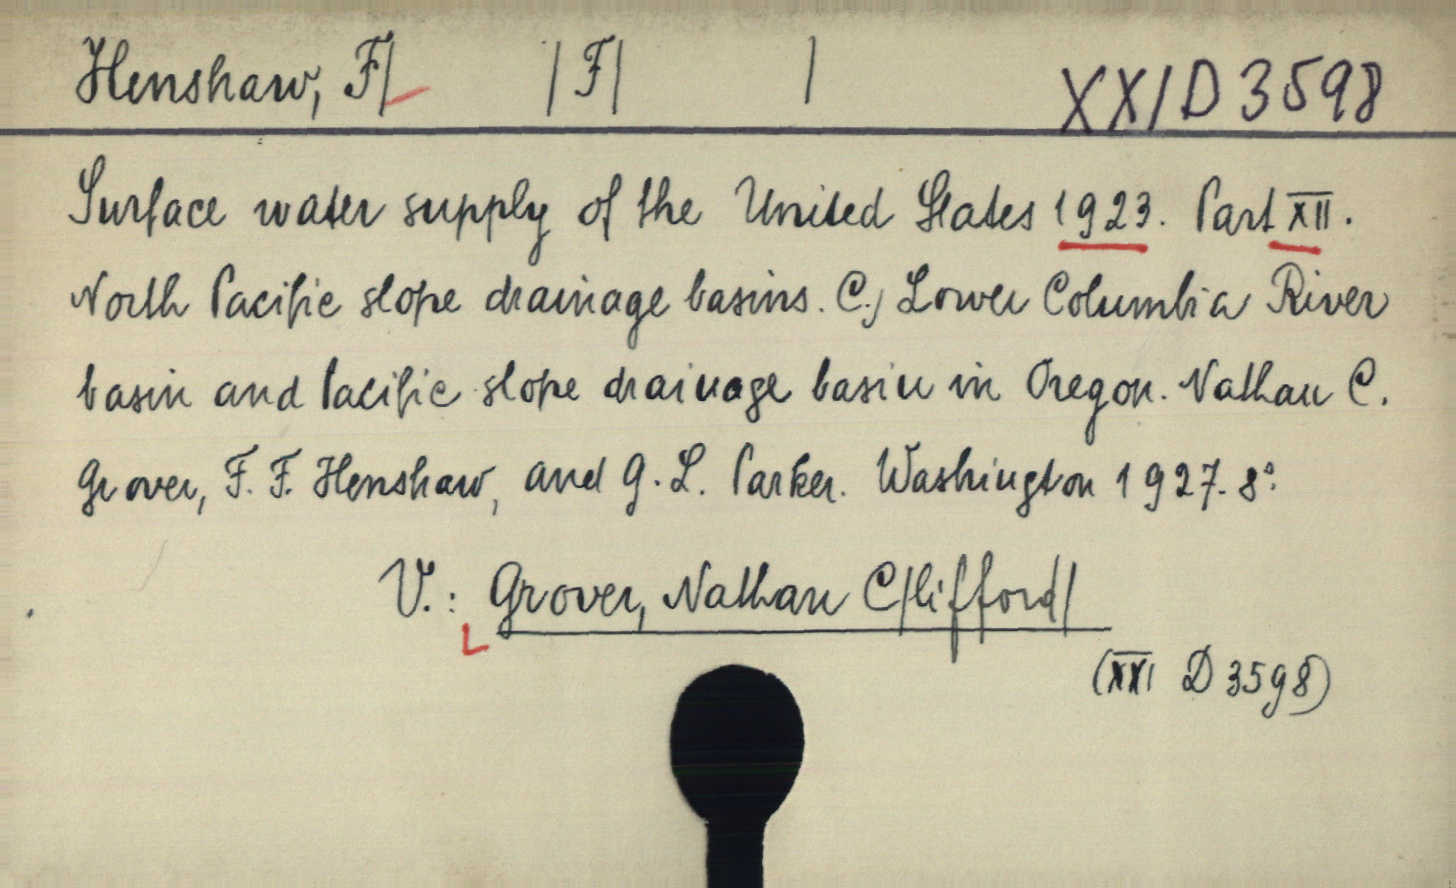 Henshaw, F/ /F/ / XXI D 3598
Surface water supply of the United States 1923. Part XII.
North Pacific slope drainage basins. C., Lower Columbia River
basin and Pacific slope drainage basin in Oregon. Nathan C.
Grover, F. F. Henshaw, and G. L. Parker. Washington 1927. 8°.
V.: Grover, Nathan C/lifford/
(XXI D 3598)